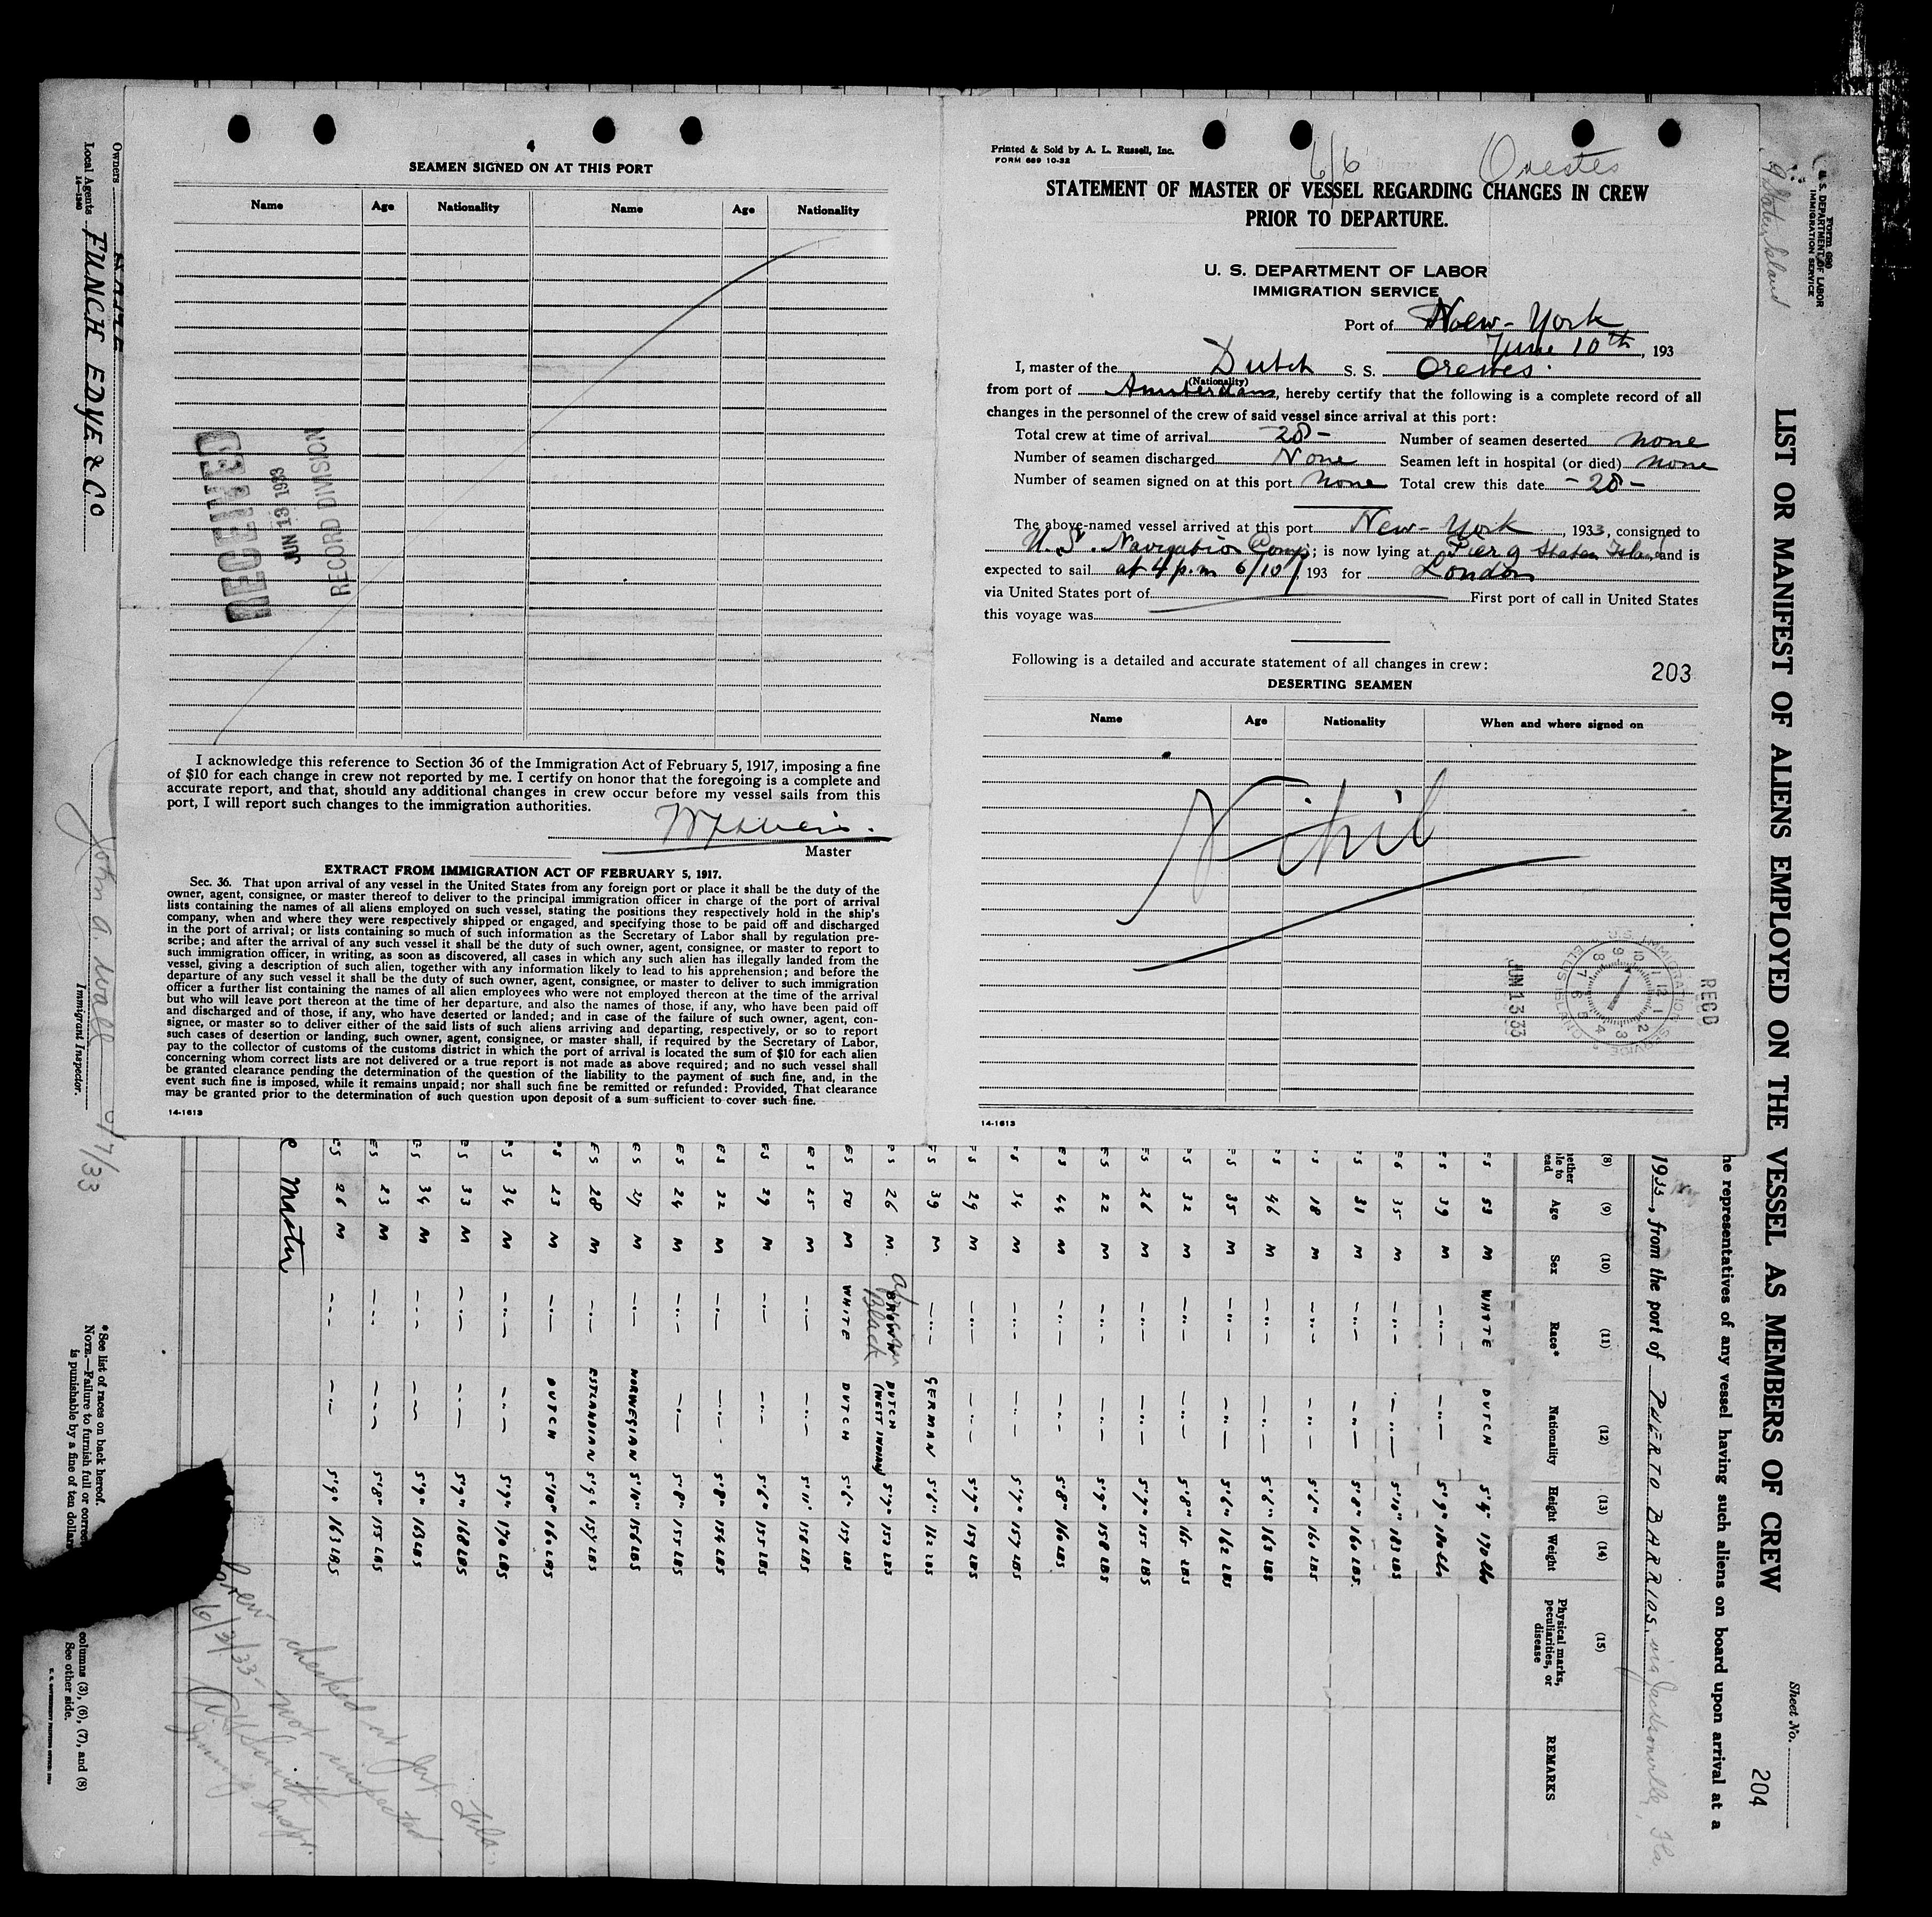 4
SEAMEN SIGNED ON AT THIS PORT
Name Age Nationality Name Age Nationality
RECEIVED
JUN 13 1933
RECORD DIVISION
I acknowledge this reference to Section 36 of the Immigration Act of February 5, 1917, imposing a fine
of $10 for each change in crew not reported by me. I certify on honor that the foregoing is a complete and
accurate report, and that, should any additional changes in crew occur before my vessel sails from this
port, I will report such changes to the immigration authorities.
Master
EXTRACT FROM IMMIGRATION ACT OF FEBRUARY 5, 1917.
Sec. 36. That upon arrival of any vessel in the United States from any foreign port or place it shall be the duty of the
owner, agent, consignee, or master thereof to deliver to the principal immigration officer in charge of the port of arrival
lists containing the names of all aliens employed on such vessel, stating the positions they respectively hold in the ship's
company, when and where they were respectively shipped or engaged, and specifying those to be paid off and discharged
in the port of arrival; or lists containing so much of such information as the Secretary of Labor shall by regulation pre-
scribe; and after the arrival of any such vessel it shall be the duty of such owner, agent, consignee, or master to report to
such immigration officer, in writing, as soon as discovered, all cases in which any such alien has illegally landed from the
vessel, giving a description of such alien, together with any information likely to lead to his apprehension; and before the
departure of any such vessel it shall be the duty of such owner, agent, consignee, or master to deliver to such immigration
officer a further list containing the names of all alien employees who were not employed thereon at the time of the arrival
but who will leave port thereon at the time of her departure, and also the names of those, if any, who have been paid off
and discharged and of those, if any, who have deserted or landed; and in case of the failure of such owner, agent, con-
signee, or master so to deliver either of the said lists of such aliens arriving and departing, respectively, or so to report
such cases of desertion or landing, such owner, agent, consignee, or master shall, if required by the Secretary of Labor,
pay to the collector of customs of the customs district in which the port of arrival is located the sum of $10 for each alien
concerning whom correct lists are not delivered or a true report is not made as above required; and no such vessel shall
be granted clearance pending the determination of the question of the liability to the payment of such fine, and, in the
event such fine is imposed, while it remains unpaid; nor shall such fine be remitted or refunded: Provided, That clearance
may be granted prior to the determination of such question upon deposit of a sum sufficient to cover such fine.
14-1613
Printed & Sold by A. L. Russell, Inc.
FORM 689 10-32
6/6 Orestes
STATEMENT OF MASTER OF VESSEL REGARDING CHANGES IN CREW
PRIOR TO DEPARTURE.
U. S. DEPARTMENT OF LABOR
IMMIGRATION SERVICE
Port of New-York
June 10th, 193
I, master of the Dutch S. S. Orestes.
(Nationality)
from port of Amsterdam, hereby certify that the following is a complete record of all
changes in the personnel of the crew of said vessel since arrival at this port:
Total crew at time of arrival 28- Number of seamen deserted none
Number of seamen discharged None Seamen left in hospital (or died) none
Number of seamen signed on at this port None Total crew this date -28-
The above-named vessel arrived at this port New-York, 1933, consigned to
U. S. Navigation Comp; is now lying at Pier 9 Staten Island, and is
expected to sail at 4 p.m 6/10, 193 for London
via United States port of First port of call in United States
this voyage was
Following is a detailed and accurate statement of all changes in crew:
203
DESERTING SEAMEN
Name Age Nationality When and where signed on
Nihil
REC'D
U.S. IMMIGRATION SERVICE
ELLIS ISLAND
JUN 13 33
14-1613
Form 680
U. S. DEPARTMENT OF LABOR
IMMIGRATION SERVICE
9 Staten Island
LIST OR MANIFEST OF ALIENS EMPLOYED ON THE VESSEL AS MEMBERS OF CREW
Sheet No.
204
he representatives of any vessel having such aliens on board upon arrival at a
1933, from the port of PUERTO BARRIOS. via Jacksonville, Fla
(8) (9) (10) (11) (12) (13) (14) (15)
Age Sex Race* Nationality Height Weight Physical marks, peculiarities, or disease REMARKS
ES 53 M WHITE DUTCH 5'4" 170 lbs
ES 39 M -"- -"- 5'9" 180 lbs
35 M -"- -"- 5'10" 183 LBS
ES 31 M -"- -"- 5'8" 160 LBS.
ES 18 M -"- -"- 5'6" 160 LBS
ES 46 M -"- -"- 5'6" 163 LBS
ES 35 M -"- -"- 5'6" 162 LBS
ES 32 M -"- -"- 5'8" 165 LBS
ES 26 M -"- -"- 5'7" 155 LBS
ES 22 M -"- -"- 5'9" 158 LBS
ES 44 M -"- -"- 5'8" 160 LBS.
ES 34 M -"- -"- 5'7" 157 LBS
ES 29 M -"- -"- 5'7" 159 LBS
ES 39 M -"- GERMAN 5'6" 162 LBS
ES 26 M. BROWN African Black DUTCH (WEST INDIAN) 5'7" 153 LBS
ES 50 M WHITE DUTCH 5'6" 157 LBS
ES 25 M -"- -"- 5'11" 158 LBS
ES 29 M -"- -"- 5'6" 155 LBS
ES 22 M -"- -"- 5'8" 154 LBS
ES 24 M -"- -"- 5'8" 155 LBS
ES 27 M -"- NORWEGIAN 5'10" 156 LBS
ES 28 M -"- ESTLANDIAN 5'9" 157 LBS
ES 23 M -"- DUTCH 5'10" 160 LBS
ES 34 M -"- -"- 5'9" 170 LBS
ES 33 M -"- -"- 5'9" 168 LBS
ES 34 M -"- -"- 5'9" 163 LBS
ES 23 M -"- -"- 5'8" 155 LBS
ES 26 M -"- -"- 5'9" 163 LBS
Master
Crew checked at Jax. Fla.
6/3/33 not inspected
Smith
Immig. Inspr.
Owners
Local Agents FUNCH EDYE & Co
14-1240
John A. Wall
Immigrant Inspector.
6/7/33
* See list of races on back hereof.
NOTE.—Failure to furnish full or correc
is punishable by a fine of ten dollar
columns (3), (6), (7), and (8)
See other side.